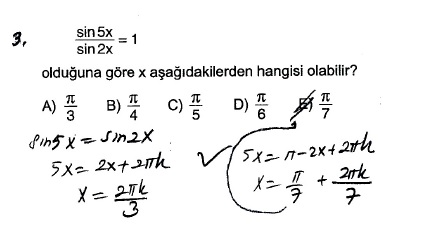 3.
sin5x / sin2x = 1
olduğuna göre x aşağıdakilerden hangisi olabilir?
A) π/3 B) π/4 C) π/5 D) π/6 E) π/7
sin5x = sin2x
5x = 2x + 2πk
x = 2πk/3
5x = π - 2x + 2πk
x = π/7 + 2πk/7